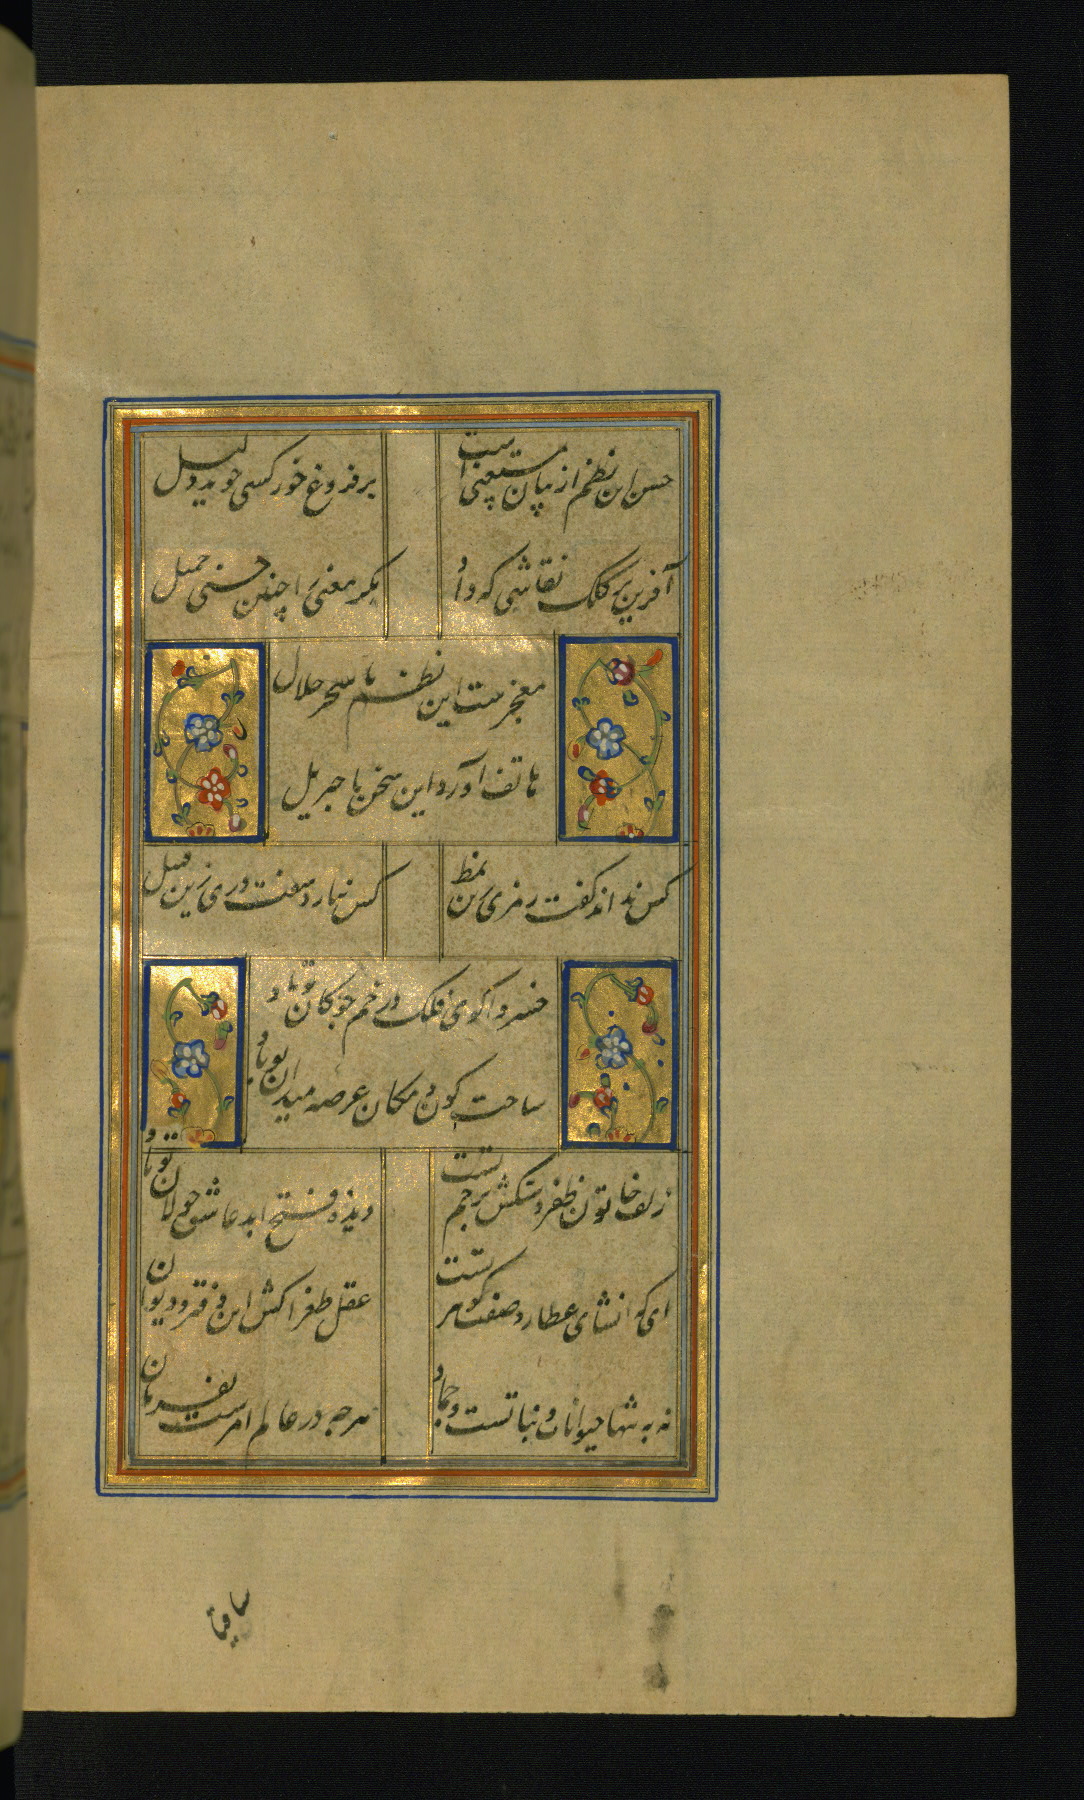 حسن این نظم از بیان مستغنی است
بر فروغ خور کسی جوید دلیل
آفرین بر کلک نقاشی که داد
بکر معنی را چنین حسنی جمیل
معجزست این نظم یا سحر حلال
هاتف آورد این سخن یا جبریل
کس نداند گفت رمزی زین نمط
کس نیارد سفت دری زین قبیل
خسروا گوی فلک در خم چوکان تو باد
ساحت کون و مکان عرصه میدان تو باد
زلف خاتون ظفر پرجم تست
دیده فتح ابد عاشق جولان تو باد
ای که انشای عطارد صفت تست
عقل طغراکش این دفتر و دیوان
نه به تنها حیوانات و نباتست و جماد
هر چه در عالم امرست بفرمان
ساقیا